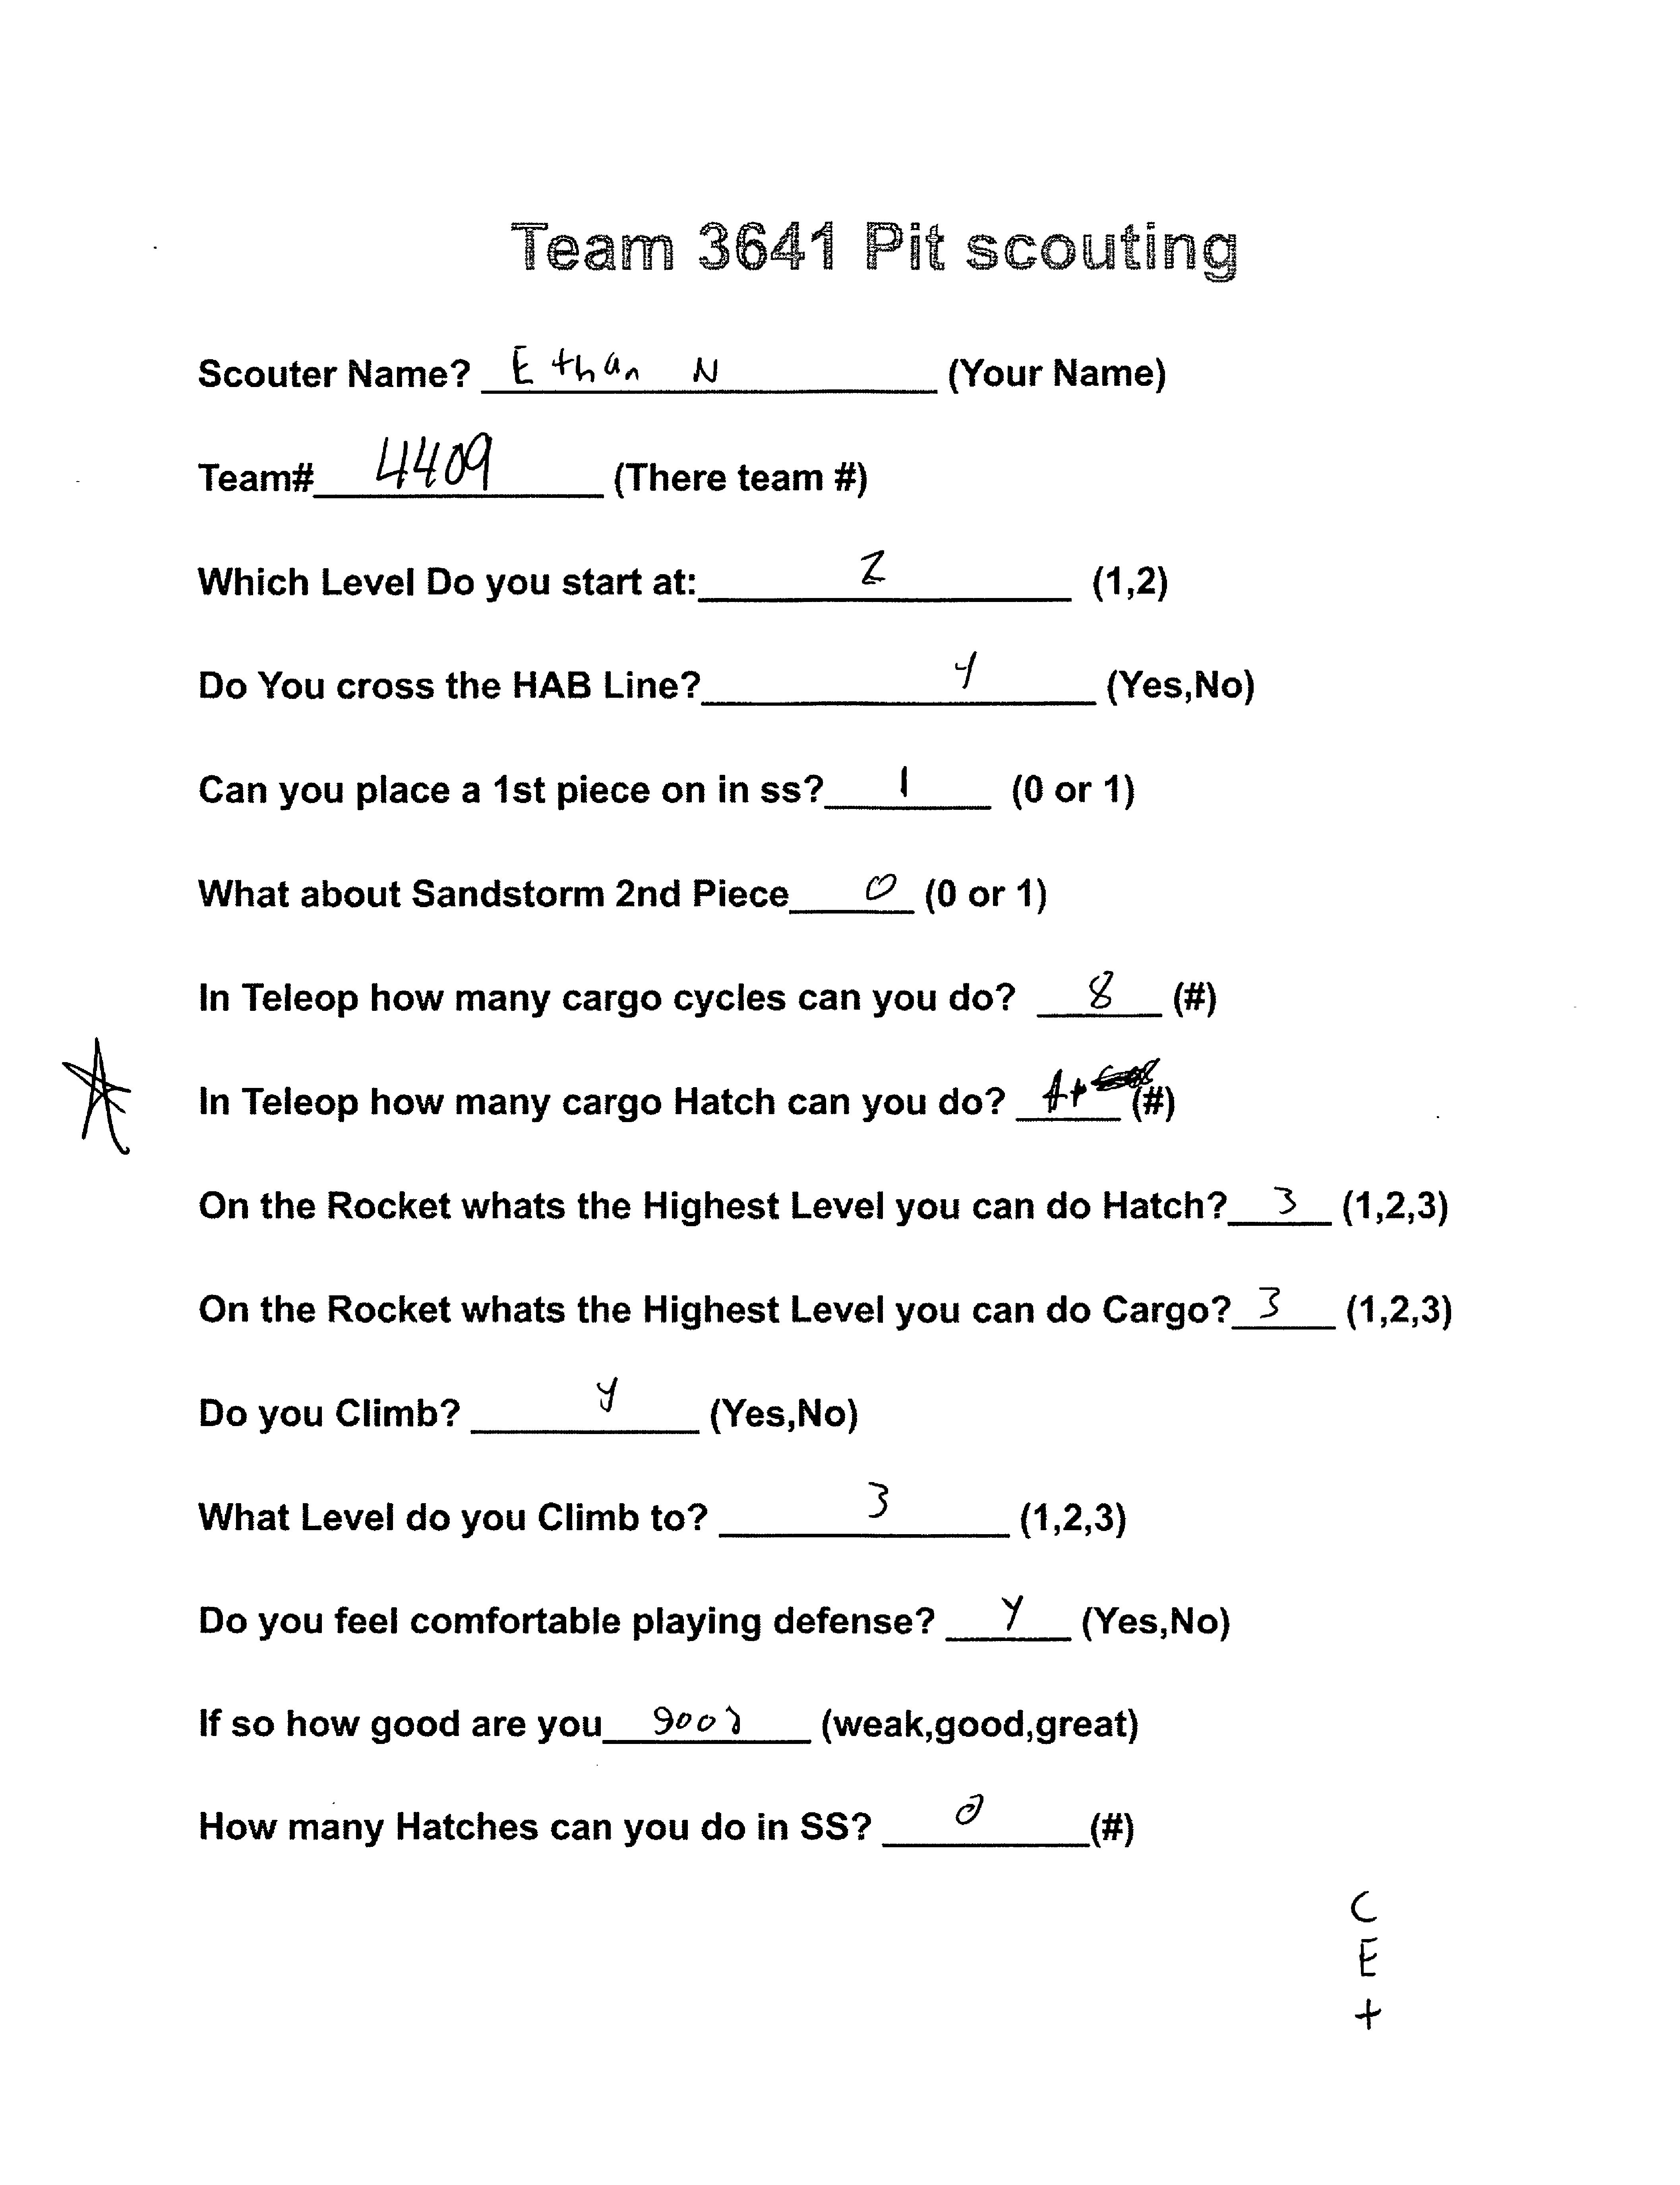 Team 3641 Pit scouting
Scouter Name? Ethan N (Your Name)
Team# 4409 (There team #)
Which Level Do you start at: 2 (1,2)
Do You cross the HAB Line? y (Yes,No)
Can you place a 1st piece on in ss? 1 (0 or 1)
What about Sandstorm 2nd Piece 0 (0 or 1)
In Teleop how many cargo cycles can you do? 8 (#)
In Teleop how many cargo Hatch can you do? (#)
On the Rocket whats the Highest Level you can do Hatch? 3 (1,2,3)
On the Rocket whats the Highest Level you can do Cargo? 3 (1,2,3)
Do you Climb? y (Yes,No)
What Level do you Climb to? 3 (1,2,3)
Do you feel comfortable playing defense? y (Yes,No)
If so how good are you good (weak,good,great)
How many Hatches can you do in SS? 0 (#)
C
E
+